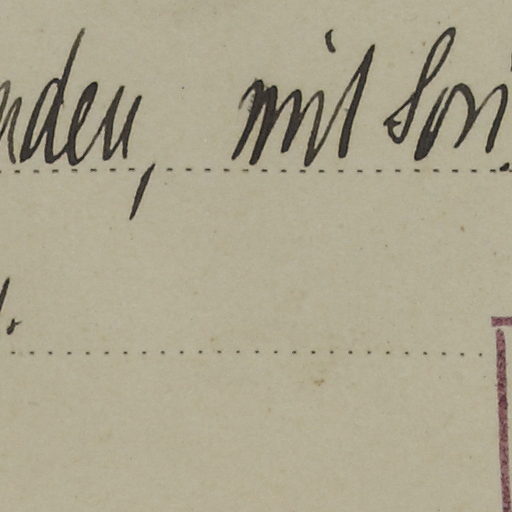 nden, mit Son